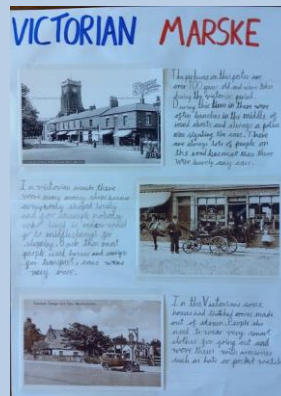 VICTORIAN MARSKE
The pictures in this poster are
over 100 years old and were taken
during the victorian period.
During this time in there were
often benches in the middle of
and always a police
man the cars. There
are always lots of people on
the road because then there
were barely any cars.
In victorian marske there
were many many shops because
everybody shopped locally
and for example nobody
who lived in
go to middlesbrough for
shopping. Back then most
people used horses and carriages
for transport, cars were
very rare.
In the Victorians some
houses and buildings were made
out of stone. People also
used to wear very smart
clothes for going out and
wore them with accessories
such as hats or pocket watches